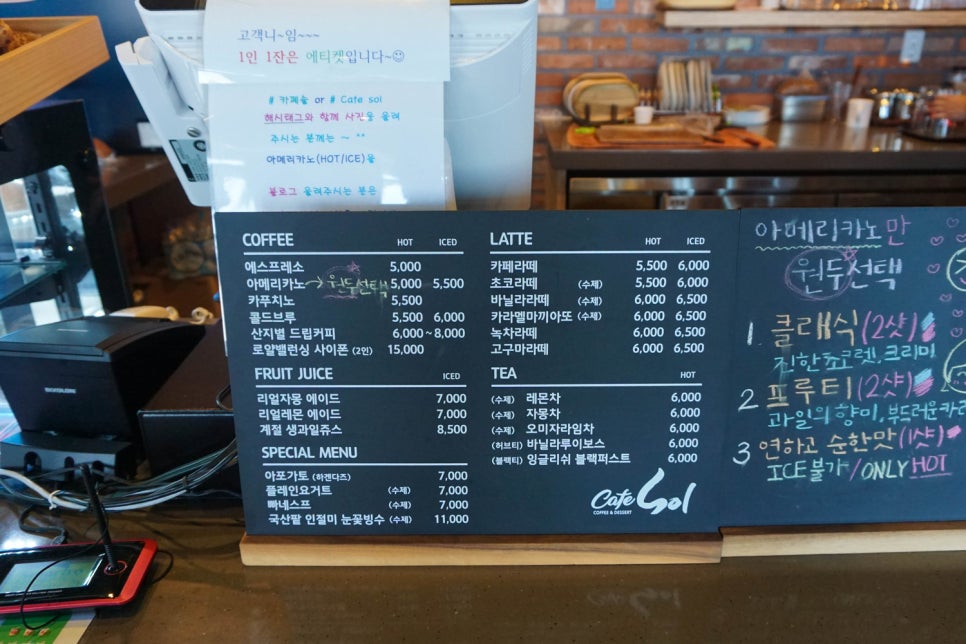 고객니~임~~~
1인 1잔은 에티켓입니다~☺
# 카페솔 or # Cafe sol
해시태그와 함께 사진을 올려
주시는 분께는 ~ ^^
아메리카노(HOT/ICE)을
블로그 올려주시는 분은
COFFEE HOT ICED
에스프레소 5,000
아메리카노 → 원두선택 5,000 5,500
카푸치노 5,500
콜드브루 5,500 6,000
산지별 드립커피 6,000~8,000
로얄밸런싱 사이폰 (2인) 15,000
FRUIT JUICE ICED
리얼자몽 에이드 7,000
리얼레몬 에이드 7,000
계절 생과일쥬스 8,500
SPECIAL MENU
아포가토 (하겐다즈) 7,000
플레인요거트 (수제) 7,000
빠네스프 (수제) 7,000
국산팥 인절미 눈꽃빙수 (수제) 11,000
LATTE HOT ICED
카페라떼 5,500 6,000
초코라떼 (수제) 5,500 6,000
바닐라라떼 (수제) 6,000 6,500
카라멜마끼아또 (수제) 6,000 6,500
녹차라떼 6,000 6,500
고구마라떼 6,000 6,500
TEA HOT
(수제) 레몬차 6,000
(수제) 자몽차 6,000
(수제) 오미자라임차 6,000
(허브티) 바닐라루이보스 6,000
(블랙티) 잉글리쉬 블랙퍼스트 6,000
Cafe Sol
COFFEE & DESSERT
아메리카노만
원두선택
1. 클래식(2샷)
진한 쵸코렛, 크리미
2 프루티(2샷)
과일의 향미, 부드러운카
3 연하고 순한맛(1샷)
ICE불가/ONLY HOT